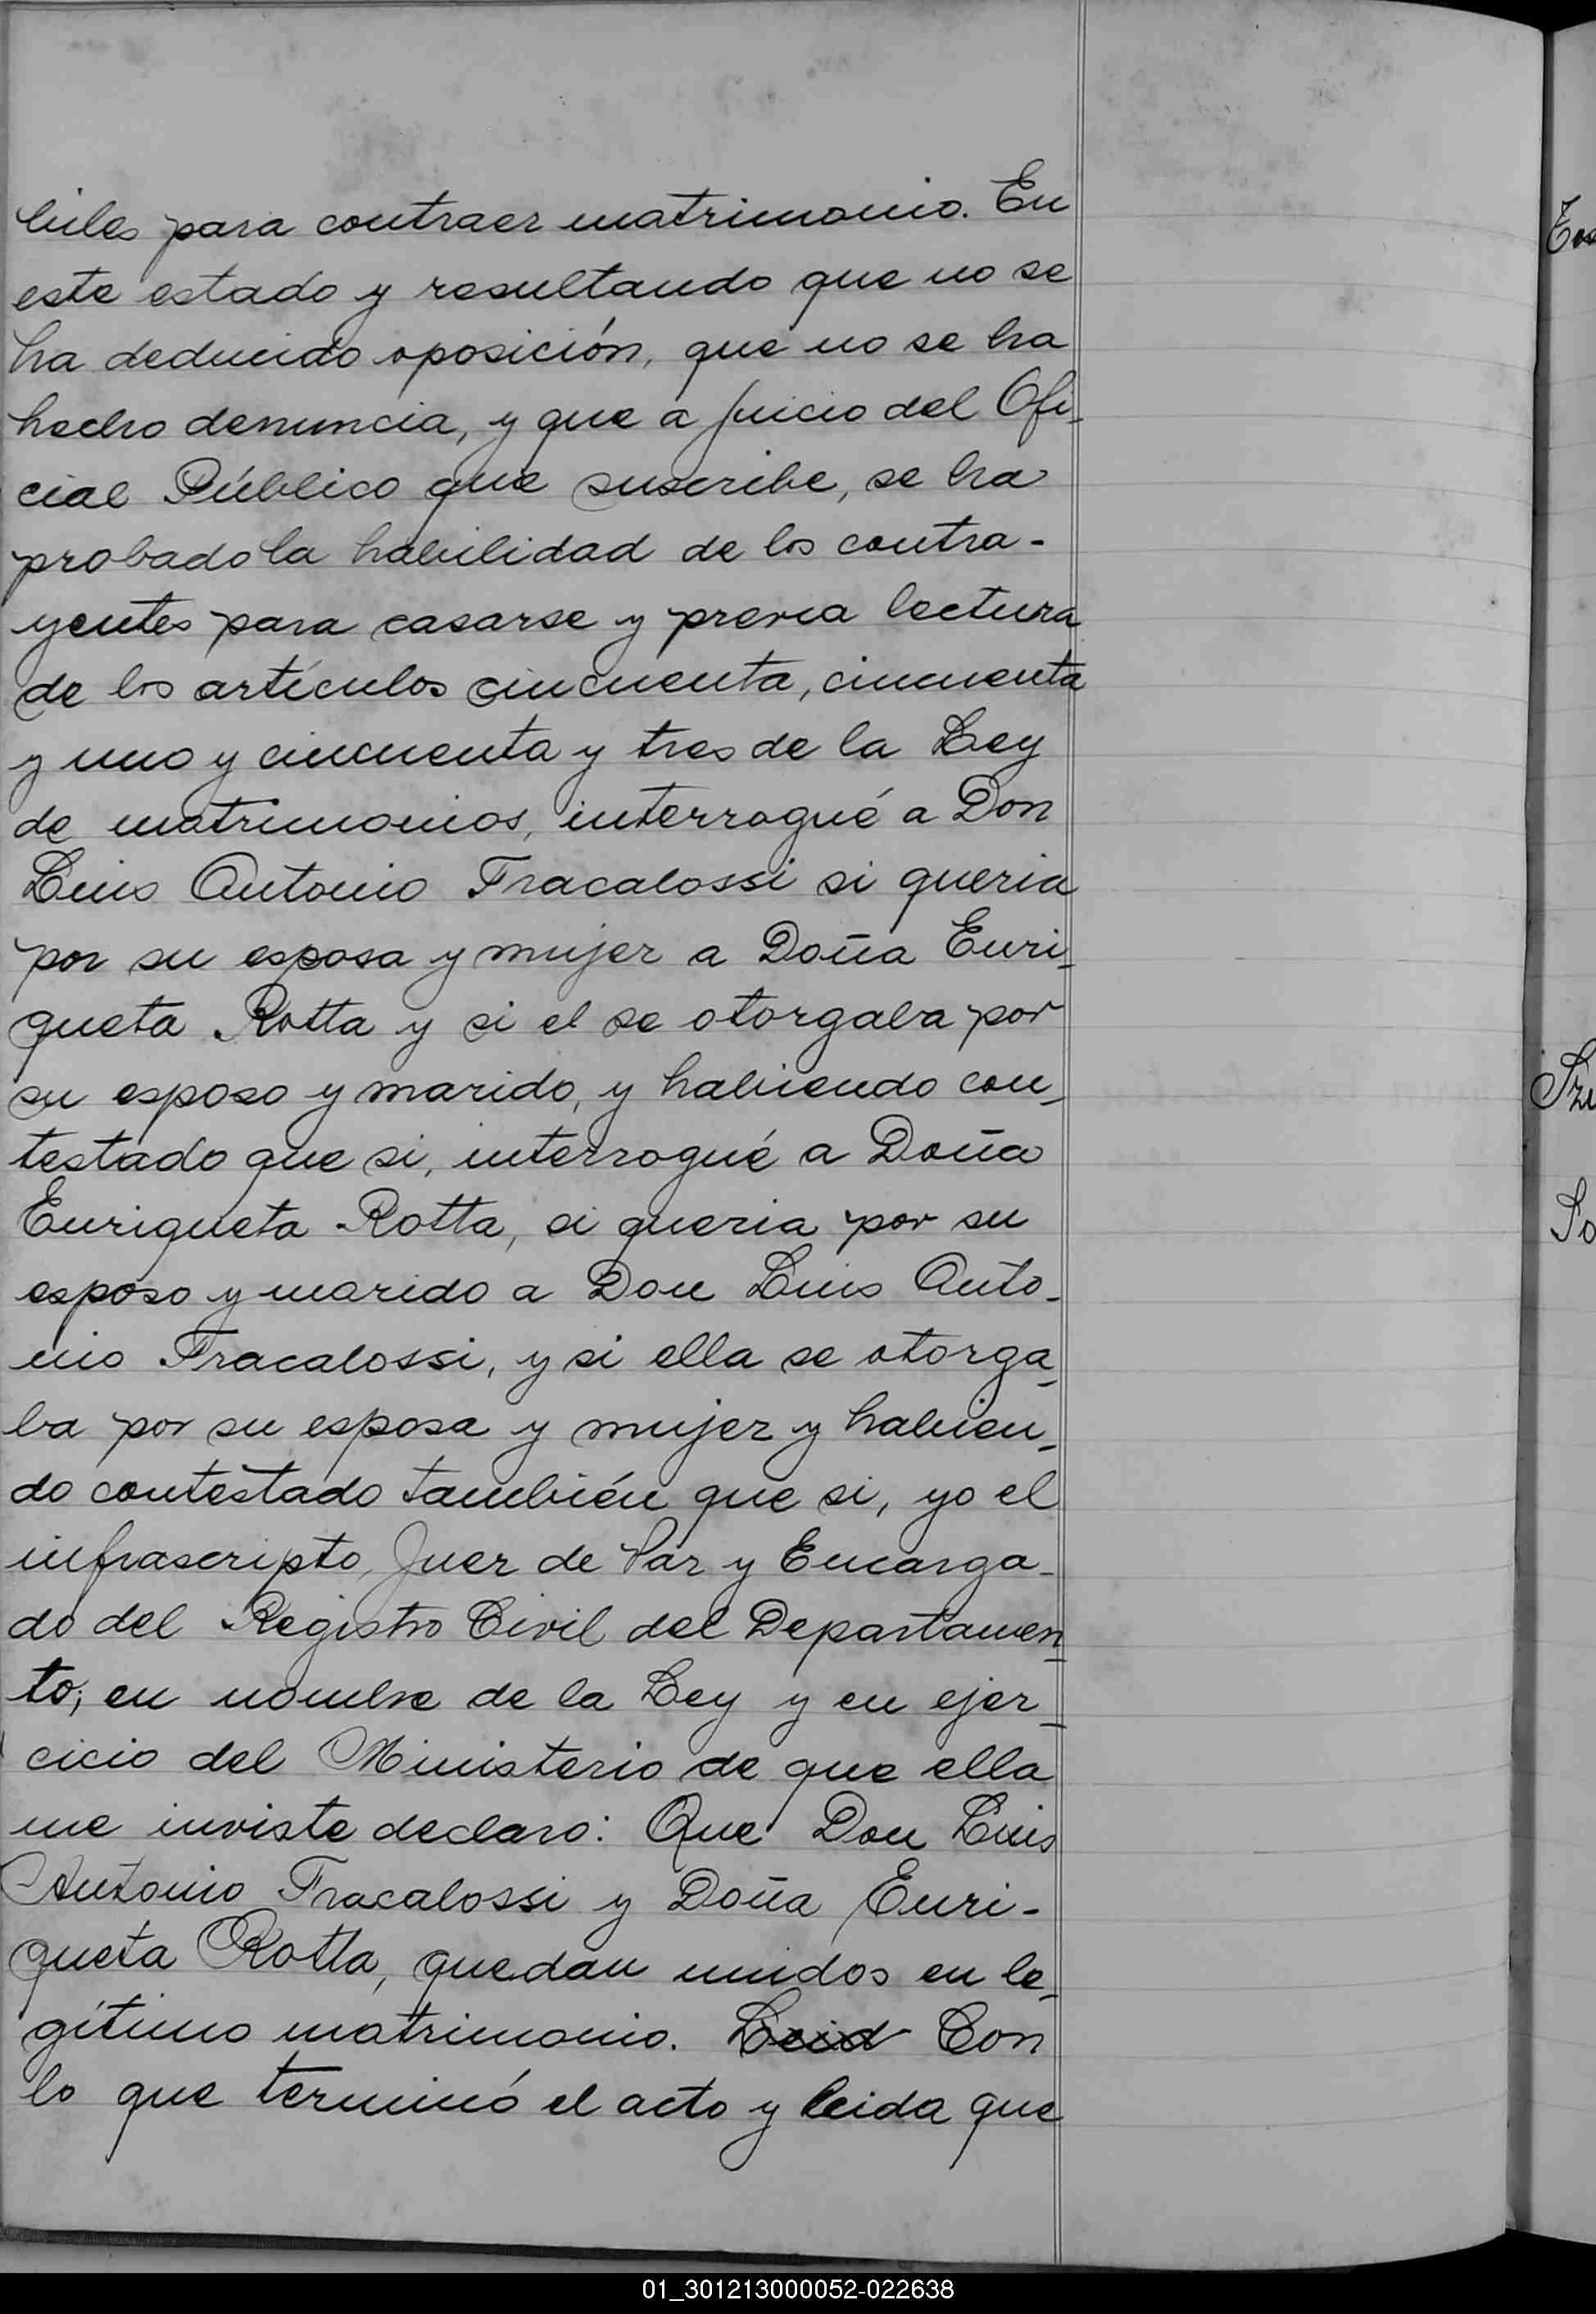 biles para contraer matrimonio. En
este estado y resultando que no se
ha deducido oposición, que no se ha
hecho denuncia, y que a juicio del Ofi-
cial Público que suscribe, se ha
probado la habilidad de los contra-
yentes para casarse y previa lectura
de los artículos cincuenta, cincuenta
y uno y cincuenta y tres de la Ley
de matrimonios, interrogué a Don
Luis Antonio Fracalossi si queria
por su esposa y mujer a Doña Enri-
queta Rotta y si el se otorgaba por
su esposo y marido, y habiendo con-
testado que si, interrogué a Doña
Enriqueta Rotta, si queria por su
esposo y marido a Don Luis Anto-
nio Fracalossi, y si ella se otorga-
ba por su esposa y mujer y habien-
do contestado también que si, yo el
infrascripto, Juez de Paz y Encarga-
do del Registro Civil del Departamen-
to; en nombre de la Ley y en ejer-
cicio del Ministerio de que ella
me inviste declaro: Que Don Luis
Antonio Fracalossi y Doña Enri-
queta Rotta, quedan unidos en le-
gítimo matrimonio. Leid Con
lo que terminó el acto y leida que
01_301213000052-022638